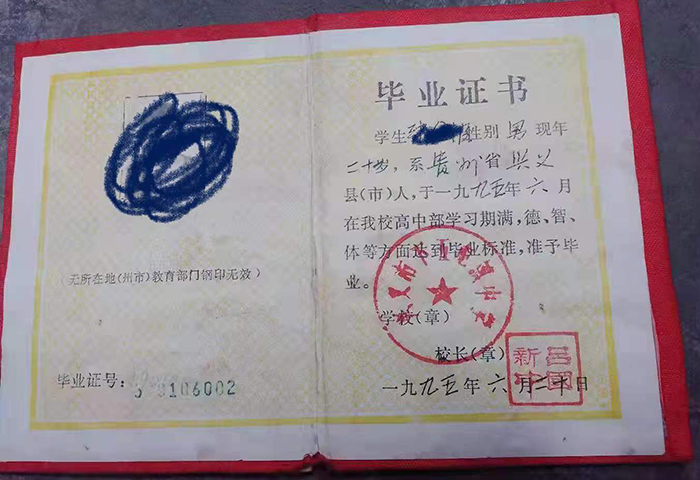 (无所在地(州市)教育部门钢印无效)
毕业证号:
9106002
毕业证书
学生 性别 男 现年
二十岁,系贵州省兴义
县(市)人,于一九九五年六月
在我校高中部学习期满,德、智、
体等方面达到毕业标准,准予毕
业。
学校(章)
校长(章)
一九九五年六月二十日